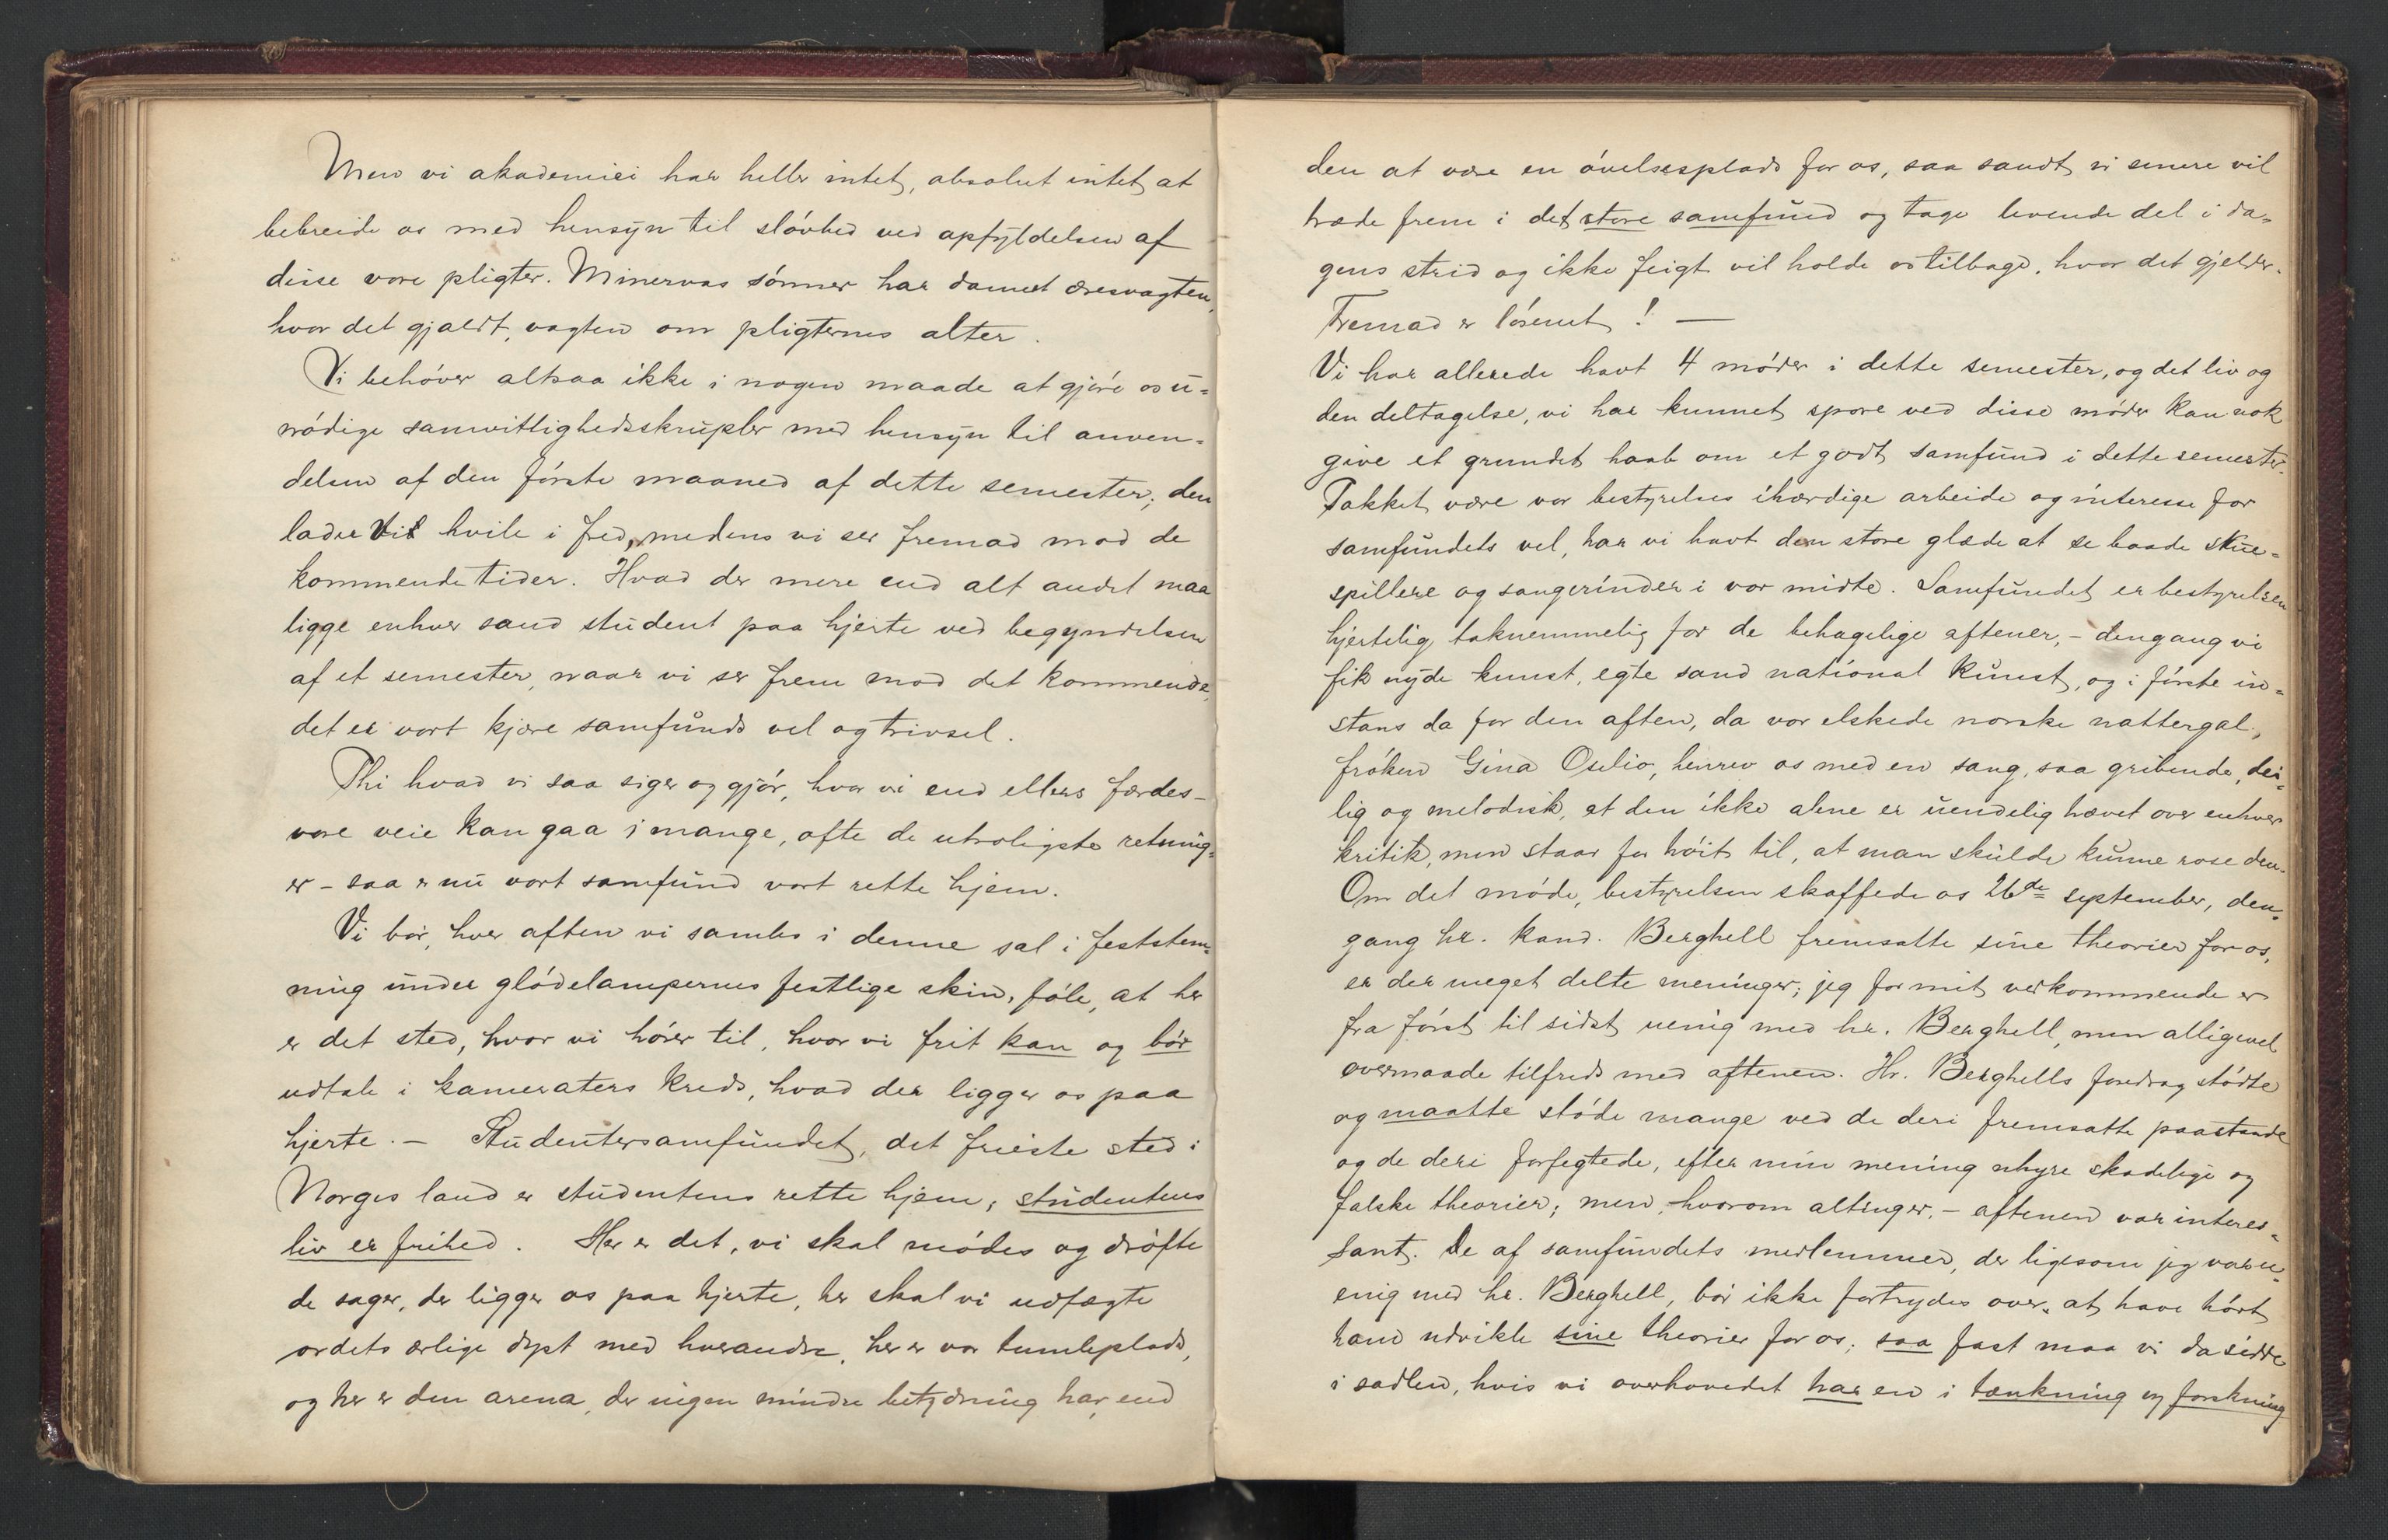 Men vi akademici har heller intet, absolut intet at
bebreide os med hensyn til sløvhed ved opfyldelsen af
disse vore pligter. Minervas sønner har dannet æresvagten,
hvor det gjaldt, vagten om pligternes alter.
Vi behøver altsaa ikke i nogen maade at gjøre os u-
nødige samvittighedsskrupler med hensyn til anven-
delsen af den første maaned af dette semester; den
lader vi hvile i fred, medens vi ser fremad mod de
kommende tider. Hvad der mere end alt andet maa
ligge enhver sand student paa hjerte ved begyndelsen
af et semester, naar vi ser frem mod det kommende,
det er vort kjære samfunds vel og trivsel.
Thi hvad vi saa siger og gjør, hvor vi end ellers færdes –
vore veie kan gaa i mange, ofte de utroligste retning-
er – saa er nu vort samfund vort rette hjem.
Vi bør, hver aften vi samles i denne sal i feststem-
ning under glødelampernes festlige skin, føle, at her
er det sted, hvor vi hører til, hvor vi frit kan og bør
udtale i kameraters kreds, hvad der ligger os paa
hjerte. – Studentersamfundet, det frieste sted i
Norges land er studentens rette hjem; studentens
liv er frihed. Her er det, vi skal mødes og drøfte
de sager, der ligger os paa hjerte, her skal vi udfægte
ordets ærlige dyst med hverandre, her er vor tumleplads,
og her er den arena, der ingen mindre betydning har, end
den at være en øvelsesplads for os, saa sandt vi senere vil
træde frem i det store samfund og tage levende del i da-
gens strid og ikke feigt vil holde os tilbage, hvor det gjelder.
Fremad er løsenet! —
Vi har allerede havt 4 møder i dette semester, og det liv og
den deltagelse, vi har kunnet spore ved disse møder kan nok
give et grundet haab om et godt samfund i dette semester.
Takket være vor bestyrelses ihærdige arbeide og interesse for
samfundets vel, har vi havt den store glæde at se baade skue-
spillere og sangerinder i vor midte. Samfundet er bestyrelsen
hjertelig taknemmelig for de behagelige aftener, – dengang vi
fik nyde kunst, egte sand national kunst, og i første in-
stans da for den aften, da vor elskede norske nattergal,
frøken Gina Oselio, henrev os med en sang, saa gribende, dei-
lig og melodisk, at den ikke alene er uendelig hævet over enhver
kritik, men staar for høit til, at man skulde kunne rose den.
Om det møde, bestyrelsen skaffede os 26de september, den-
gang hr. kand. Berghell fremsatte sine theorier for os,
er der meget delte meninger; jeg for mit vedkommende er
fra først til sidst uenig med hr. Berghell, men alligevel
overmaade tilfreds med aftenen. Hr. Berghells foredrag stødte
og maatte støde mange ved de deri fremsatte paastande
og de deri forfegtede, efter min mening uhyre skadelige og
falske theorier; men, hvorom alting er, – aftenen var interes-
sant. De af samfundets medlemmer, der ligesom jeg var u-
enig med hr. Berghell, bør ikke fortrydes over, at have hørt
ham udvikle sine theorier for os; saa fast maa vi da sidde
i sadlen, hvis vi overhovedet har en i tænkning og forskning